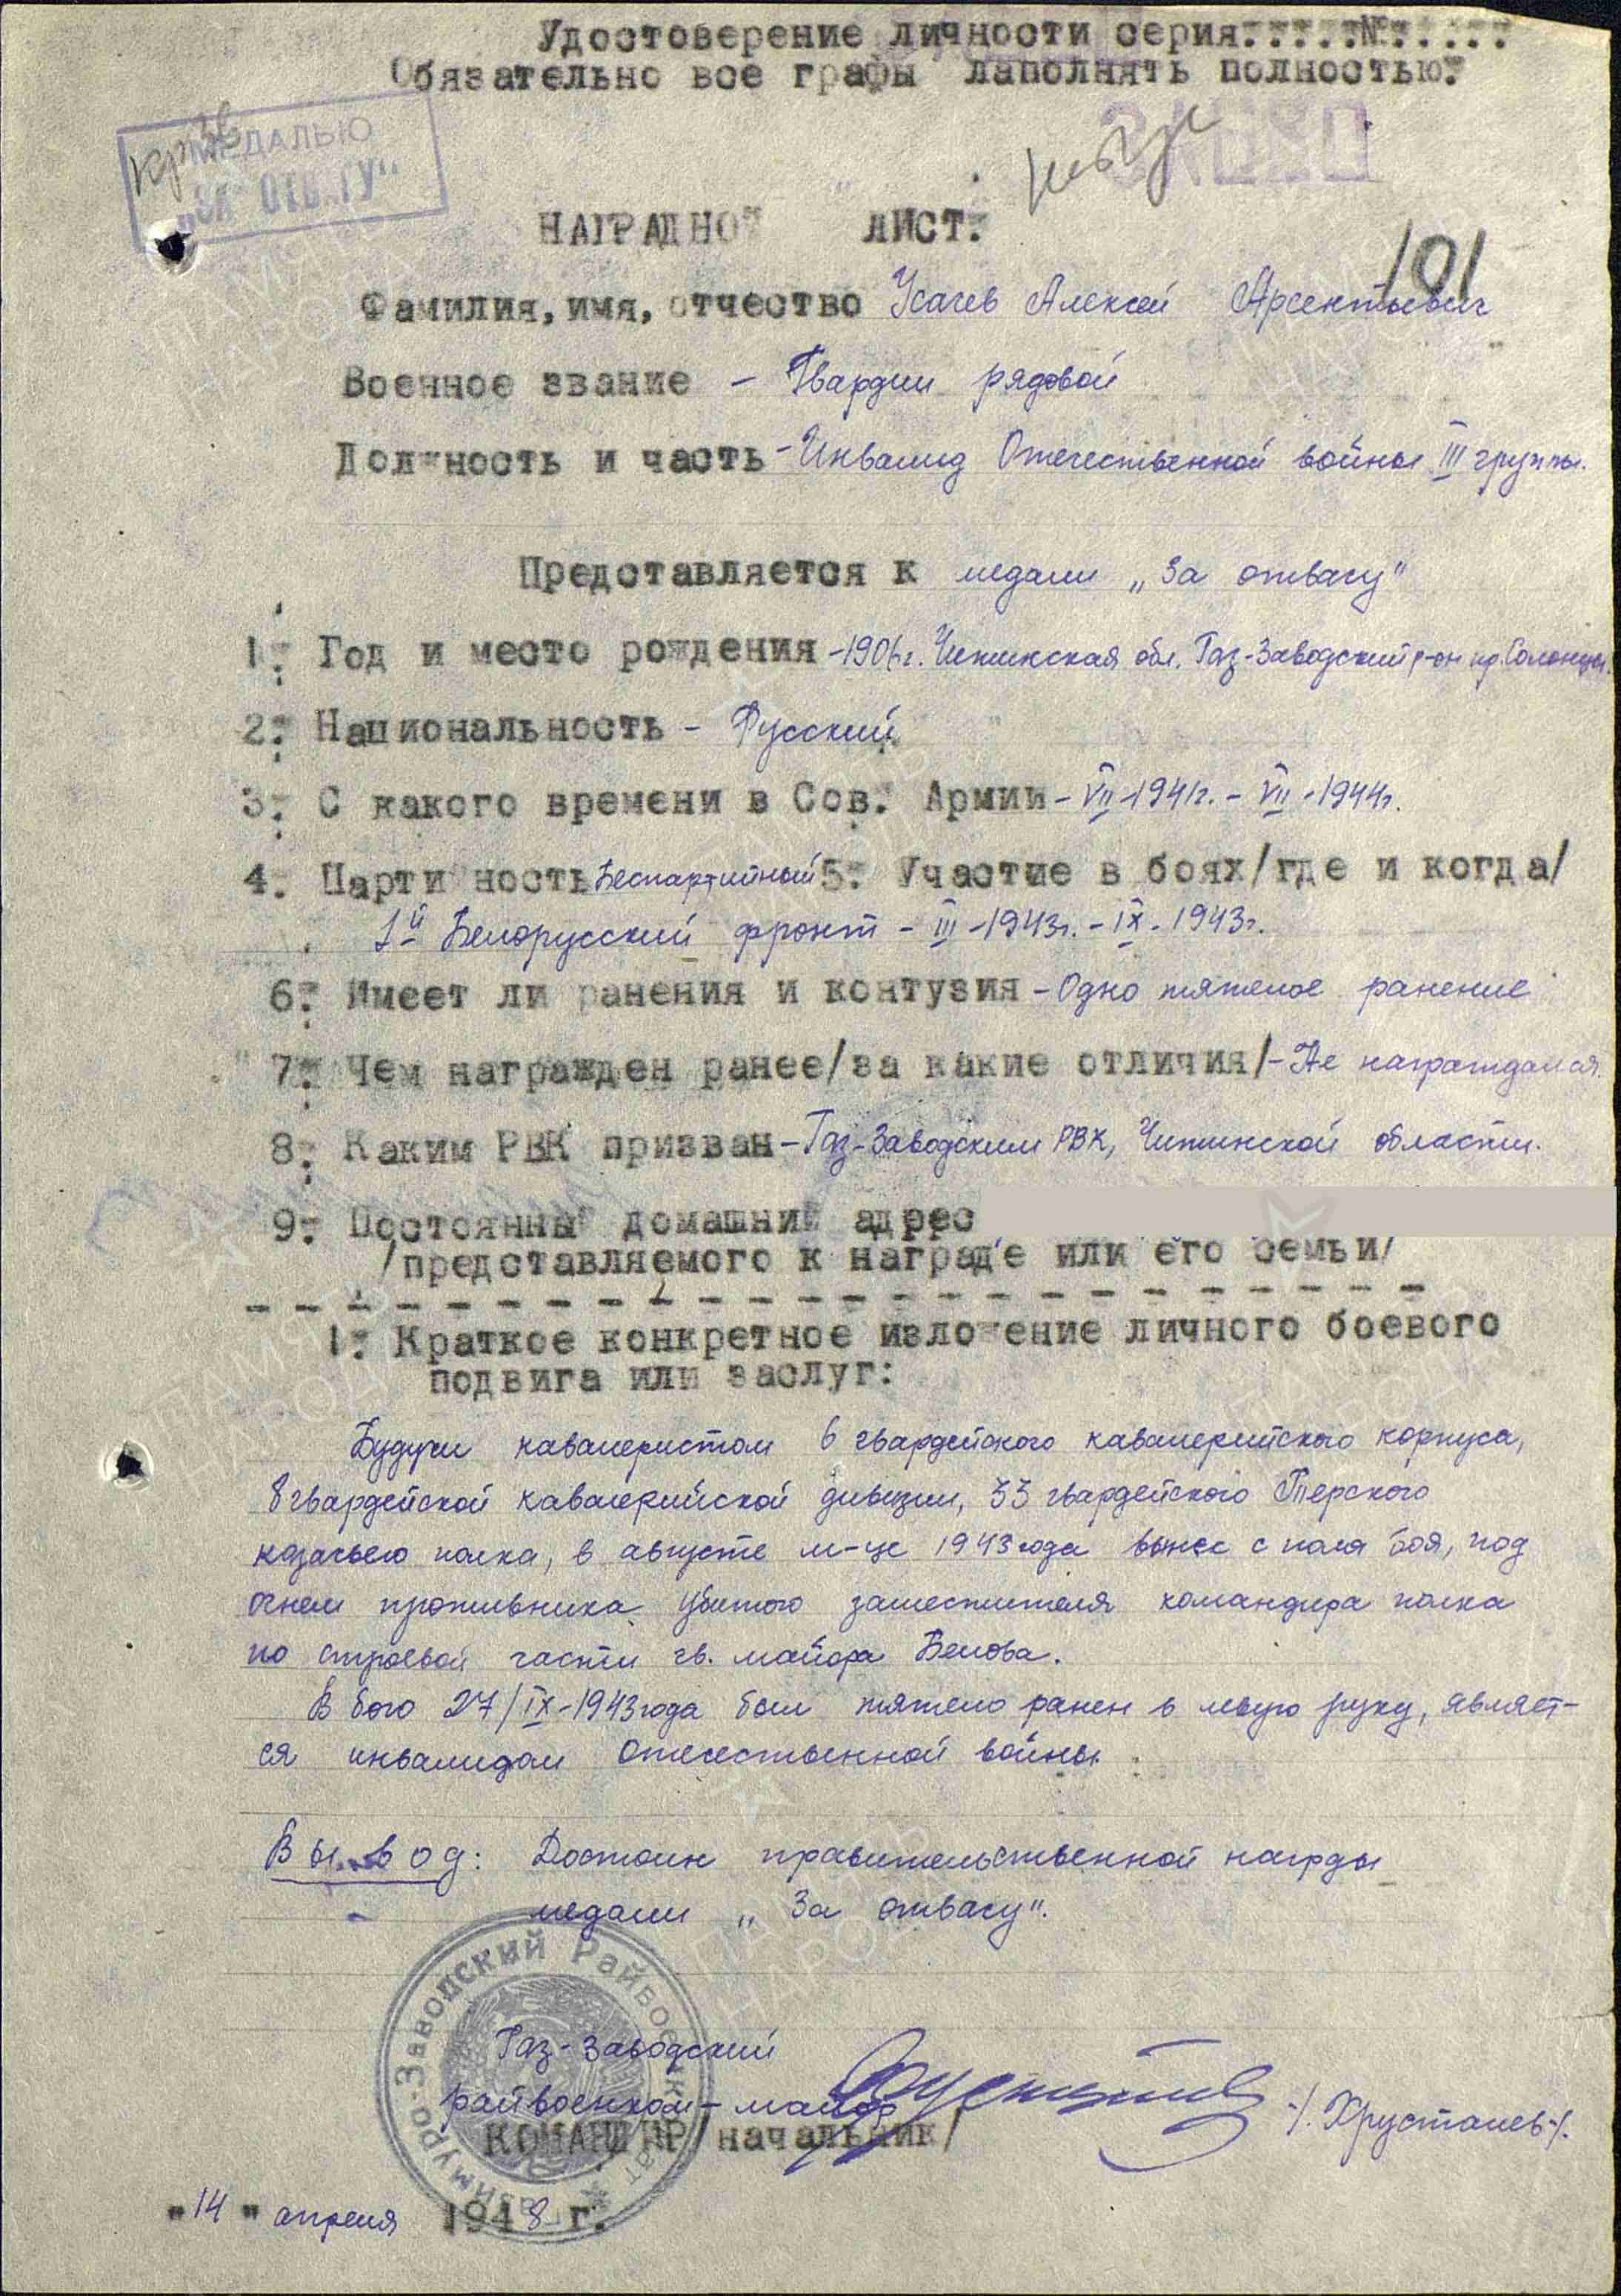 Удостоверение личности серия.....№.....
Обязательно все графы лаполнять полностью.
МЕДАЛЬЮ
"ЗА ОТВ.ГУ"
НАГРАДНОЙ ЛИСТ.
101
Фамилия, имя, отчество Усачев Алексей Арсентьевич
Военное звание – Гвардии рядовой
Должность и часть – Инвалид Отечественной войны III группы.
Представляется к медали „За отвагу"
1. Год и место рождения – 1906г. Читинская обл. Газ-Заводский р-он пр. Солонцы.
2. Национальность – Русский
3. С какого времени в Сов. Армии – VII-1941г. – VII-1944г.
4. Партийность Беспартийный 5. Участие в боях/где и когда/
1й Белорусский фронт – III-1943г. – IX-1943г.
6. Имеет ли ранения и контузия – Одно тяжелое ранение
7. Чем награжден ранее/за какие отличия/ – Не награждался.
8. Каким РВК призван – Газ-Заводским РВК, Читинской области.
9. Постоянный домашний адрес
/представляемого к награде или его семьи/
1. Краткое конкретное изложение личного боевого
подвига или заслуг:
Будучи кавалеристом 6 гвардейского кавалерийского корпуса,
8 гвардейской кавалерийской дивизии, 33 гвардейского Терского
казачьего полка, в августе м-це 1943 года вынес с поля боя, под
огнем противника убитого заместителя командира полка
по строевой части гв. майора Белова.
В бою 27/IX-1943 года был тяжело ранен в левую руку, являет-
ся инвалидом Отечественной войны.
Вывод: Достоин правительственной нагрды
медали „За отвагу".
Газ-Заводский
райвоенком – майор
-/. Хрусталев-/.
КОМАНДИР/начальник/
Газимуро-Заводский Райвоенкомат
"14" апреля 1948 г.